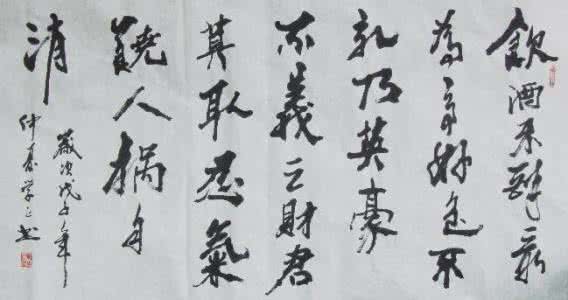 飲酒不醉最
為高好色不
乱乃英豪
不義之財君
莫取忍氣
饒人禍自
消
歲次戊子年
仲春学书